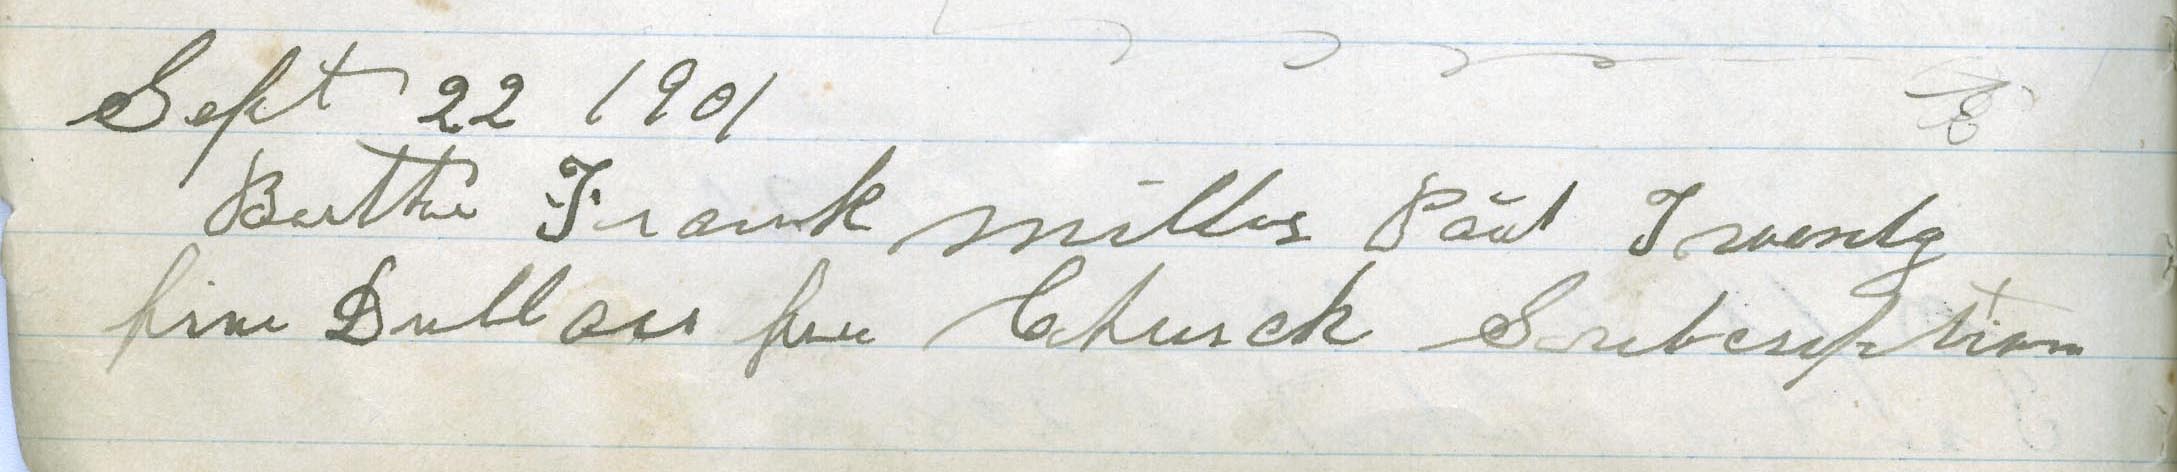 Sept 22 1901
Frank Miller Paid Twenty
five Dollars for Church Subscription